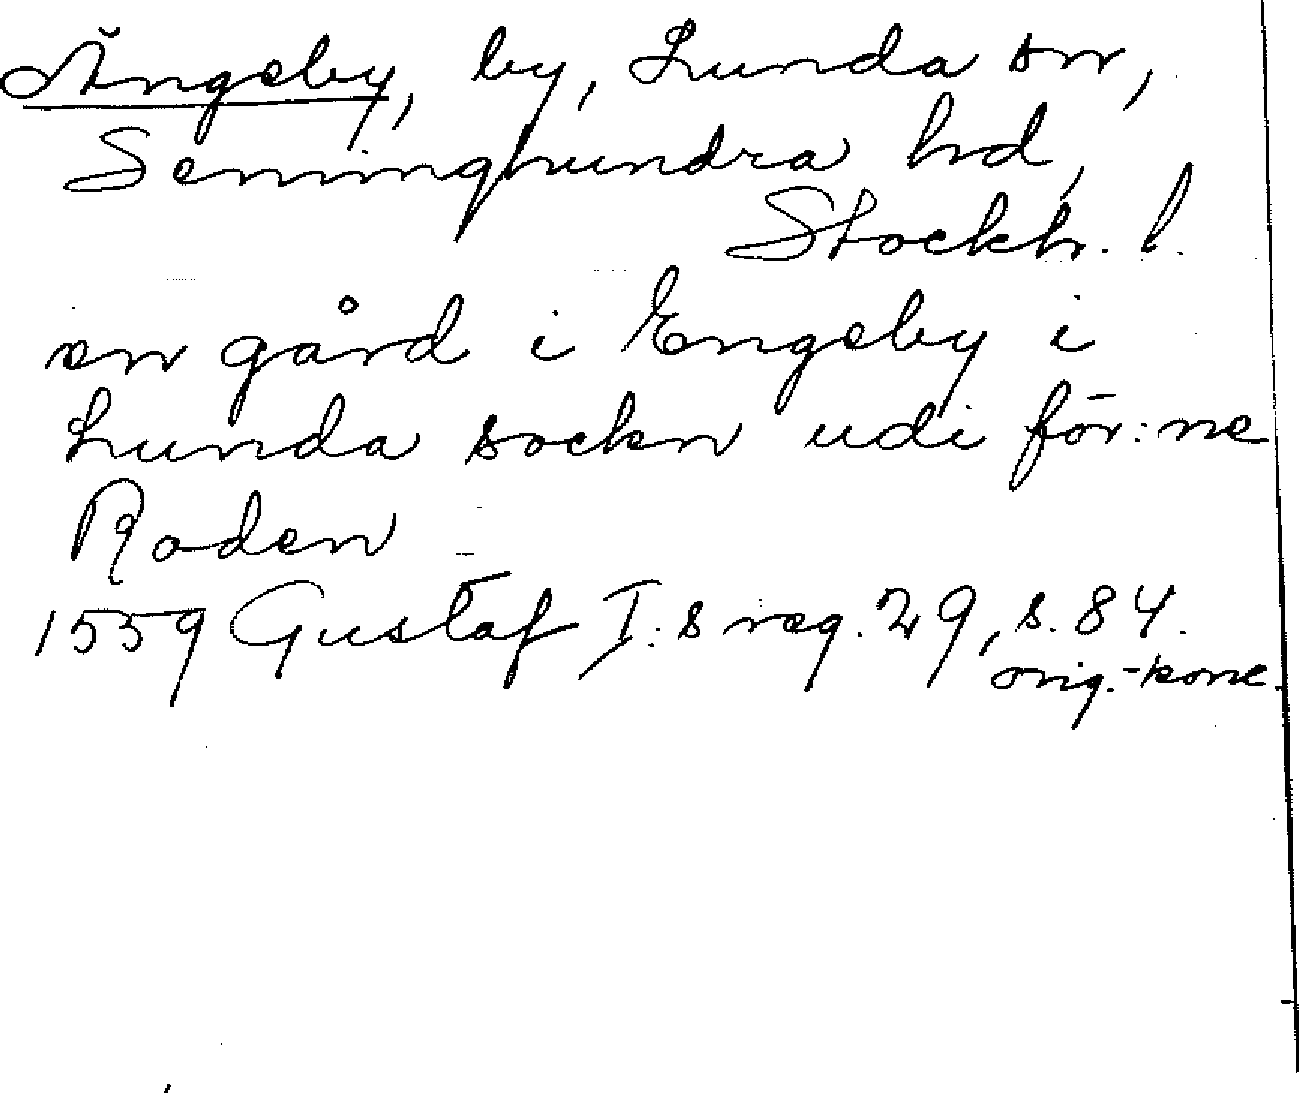 Ängeby, by, Lunda sn,
Seminghundra hd,
Stockh. l.
en gård i Engeby i
Lunda sockn udi för:ne
Roden
1559 Gustaf I:s reg. 29, s. 84.
orig.-konc.